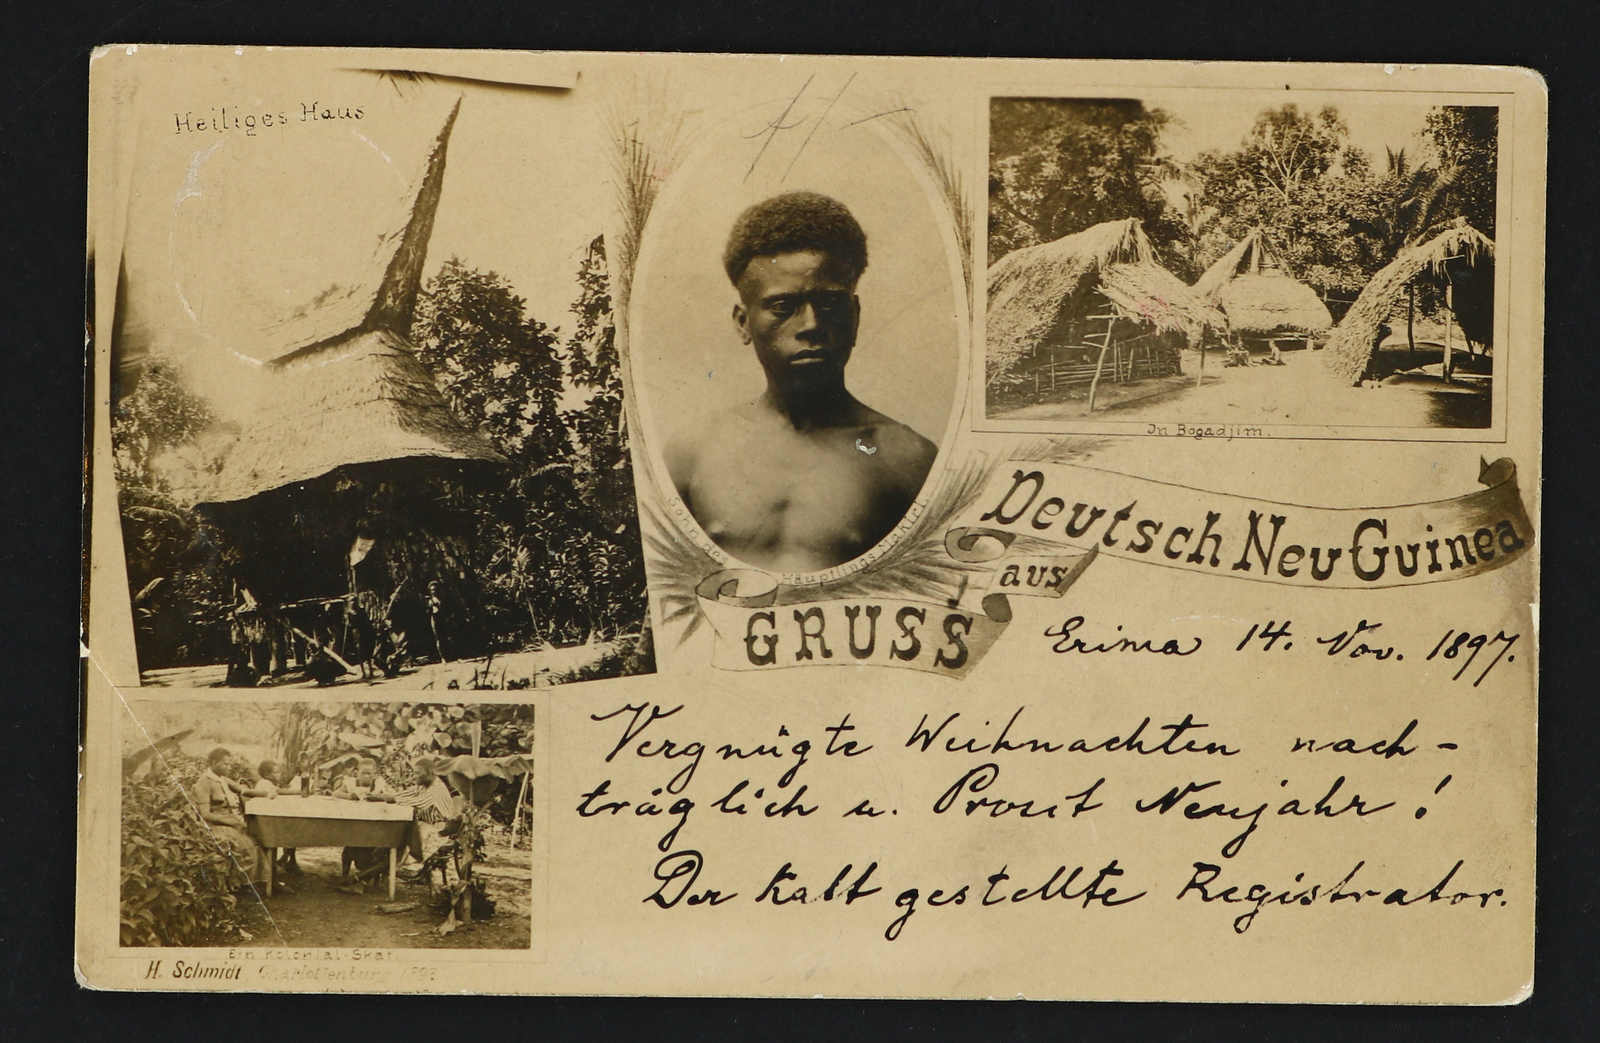 Heiliges Haus
In Bogadjim.
Sohn des Häuptlings Makiri
GRUSS
aus
Deutsch Neu Guinea
Erima 14. Nov. 1897.
Vergnügte Weihnachten nach-
träglich u. Prosit Neujahr!
Der kalt gestellte Registrator.
Ein Kolonial-Skat
H. Schmidt Charlottenburg